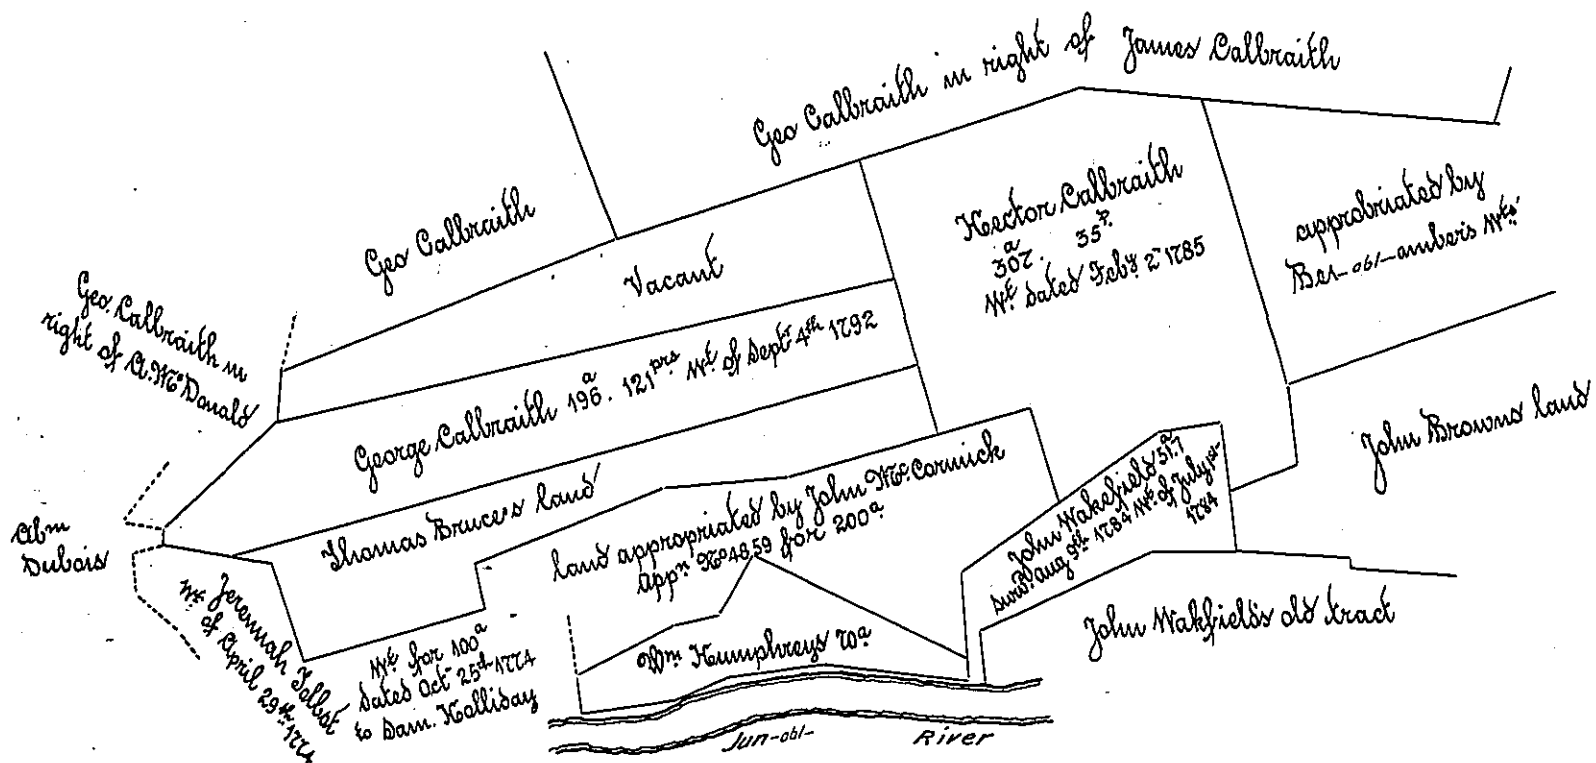 Geo Calbraith in right of James Calbraith
Geo Calbraith
Vacant
Hector Calbraith
307.a 35p.
Wt. dated Feby. 2d 1785
approbriated by
Ber-obl-ambers Wts.
Geo. Calbraith in
right of A. McDonald
George Calbraith 196.a 121prs Wt. of Septr 4th 1792
John Browns land
Thomas Bruce's land
land appropriated by John McCormick
appn No 4859 for 200a
John Wakefield 51.a 7
Survd. aug 9th 1784 Wt. of July 1st-
1784
Abm
Dubois
Jeremiah Talbot
Wt. of April 29th 1774
Wt for 100a
dated Oct 25th 1774
to Sam. Holliday
Wm Humphreys 70a
John Wakfield's old tract
Jun-obl- River